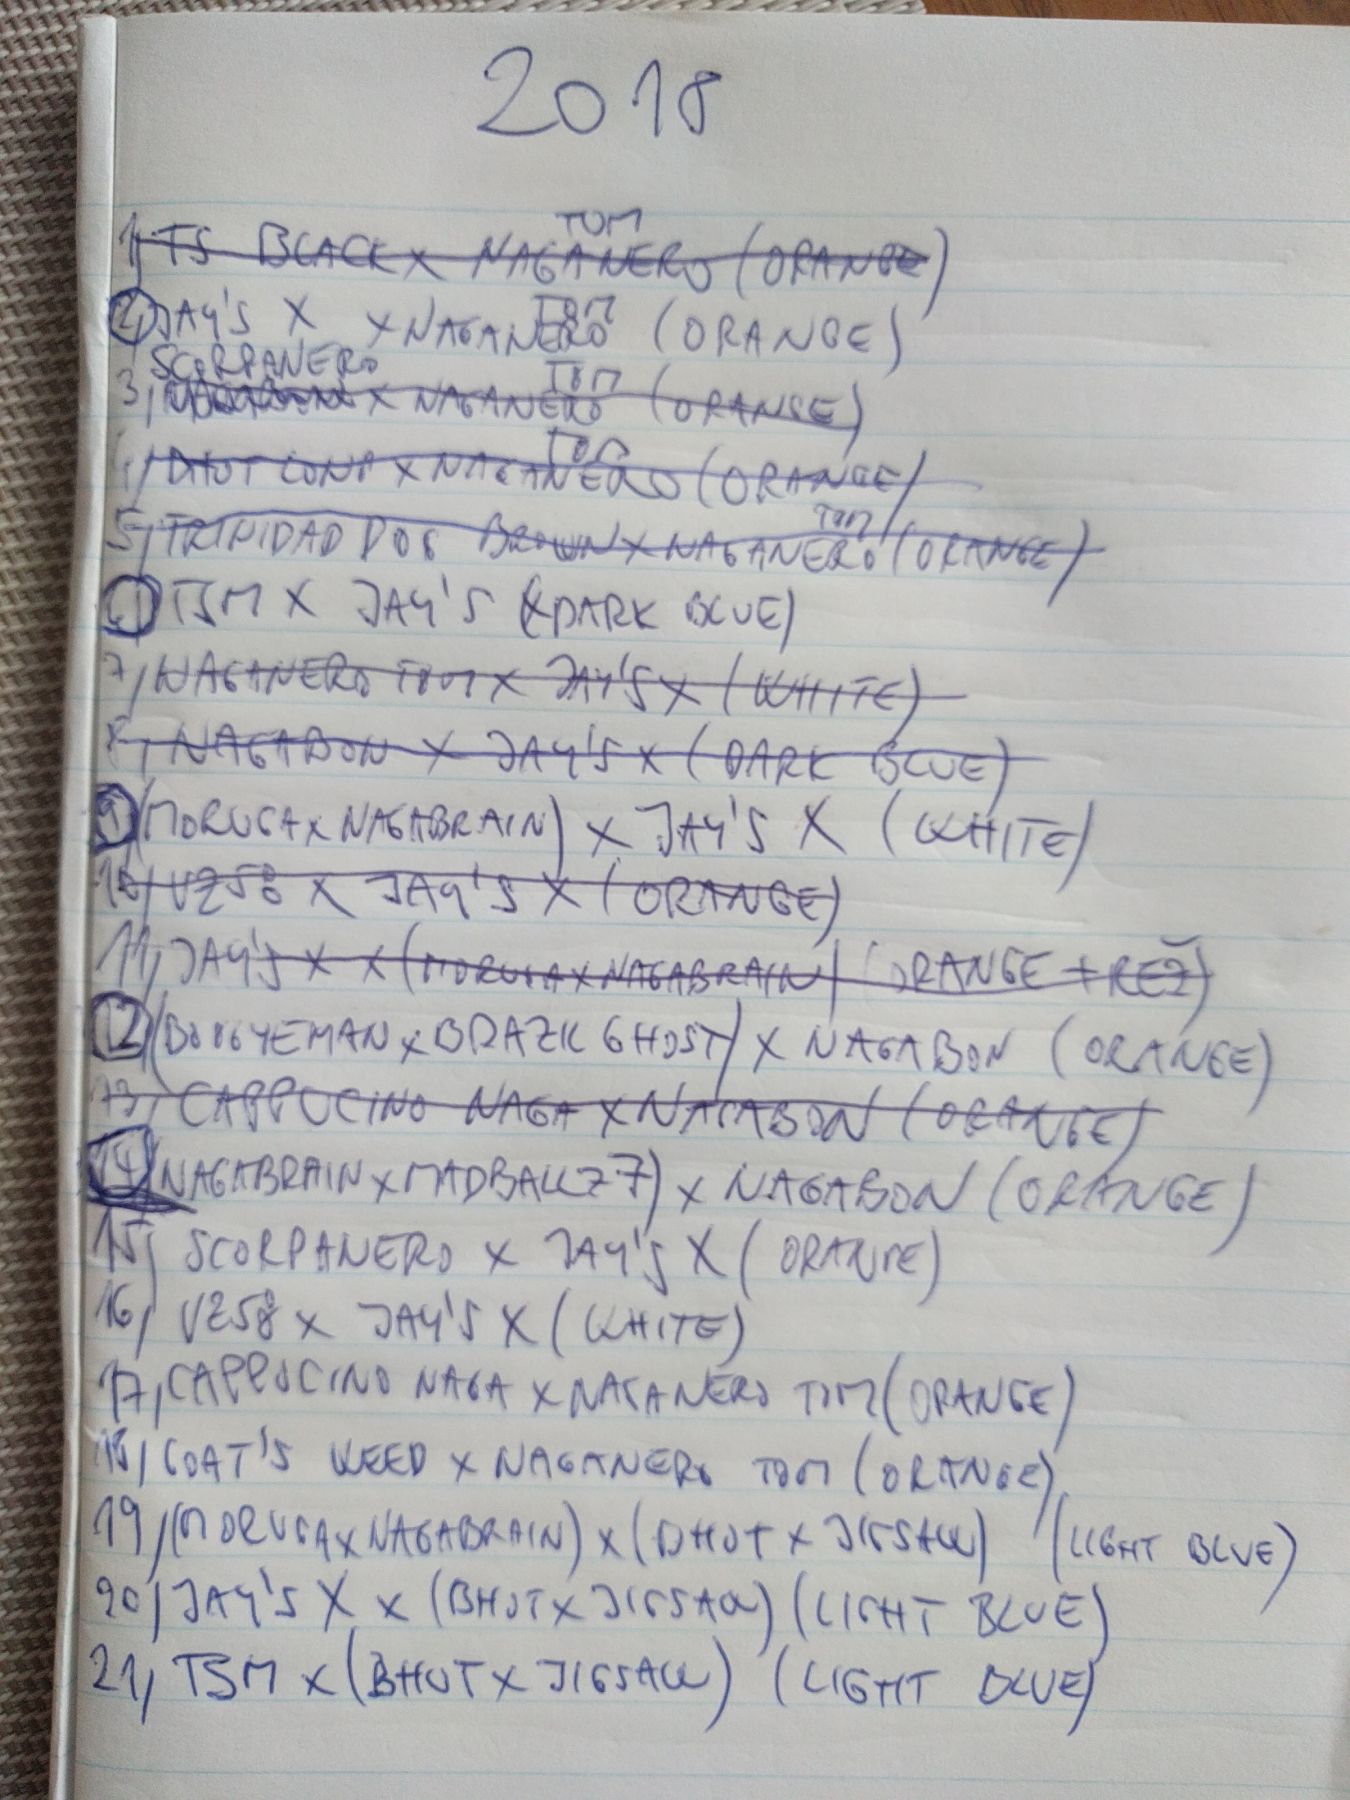 2018
1, TS BLACK x NAGANERO TOM (ORANGE)
2, JAY'S X x NAGANERO TOM (ORANGE)
3, SCORPANERO x NAGANERO TOM (ORANGE)
4, BHUT CONP x NAGANERO TOM (ORANGE)
5, TRINIDAD DOG BROWN x NAGANERO TOM (ORANGE)
6, TSM X JAY'S (DARK BLUE)
7, NAGANERO TOM x JAY'S X (WHITE)
8, NAGABON X JAY'S X (DARK BLUE)
9, (MORUGA x NAGABRAIN) x JAY'S X (WHITE)
10, VZ58 X JAY'S X (ORANGE)
11, JAY'S X x (MORUGA x NAGABRAIN) (ORANGE + REŽ)
12, (BOOGYEMAN x BRAZIL GHOST) x NAGABON (ORANGE)
13, CAPPUCINO NAGA x NAGABON (ORANGE)
14, (NAGABRAIN x MADBALLZ 7) x NAGABON (ORANGE)
15, SCORPANERO x JAY'S X (ORANGE)
16, VZ58 x JAY'S X (WHITE)
17, CAPPUCINO NAGA x NAGANERO TOM (ORANGE)
18, GOAT'S WEED x NAGANERO TOM (ORANGE)
19, (MORUGA x NAGABRAIN) x (BHUT x JIGSAW) (LIGHT BLUE)
20, JAY'S X x (BHUT x JIGSAW) (LIGHT BLUE)
21, TSM x (BHUT x JIGSAW) (LIGHT BLUE)